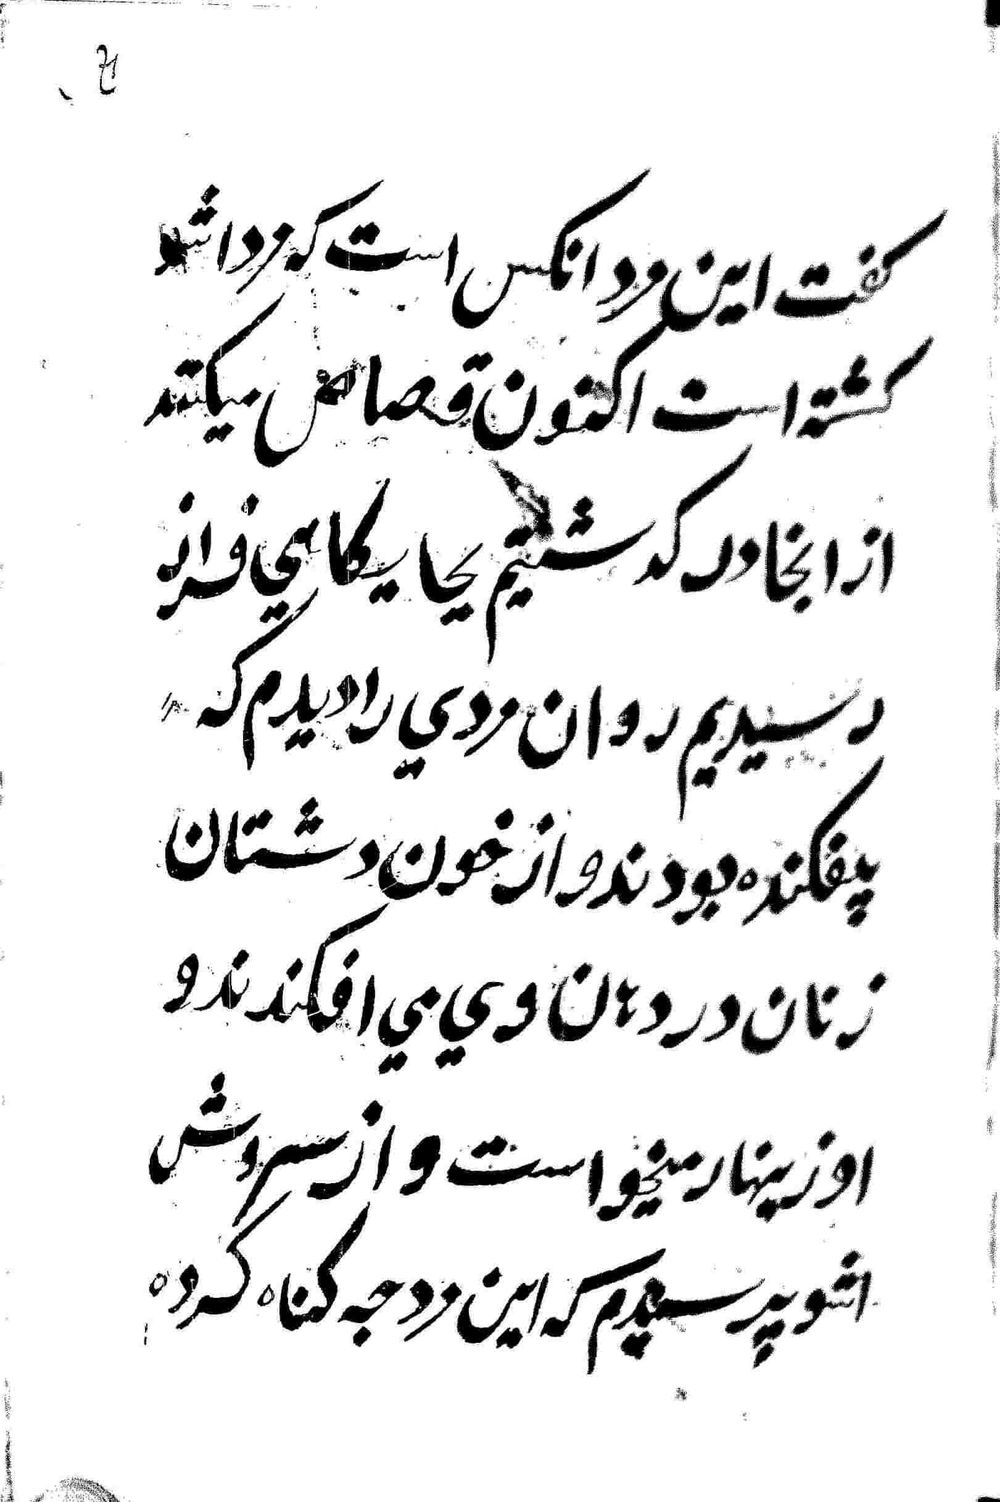 کفت این مرد انکس است که مرد اشو
کشته است اکنون قصاص میکنند
از انجا در کدشتیم بجایکاهي فراتر
رسیدیم روان مردي را دیدم که
پیفکنده بودند و از خون دشتان
زنان در دهان وي مي افکندند و
او زینهار میخواست و از سروش
اشو پرسیدم که این مرد چه کناه کرده